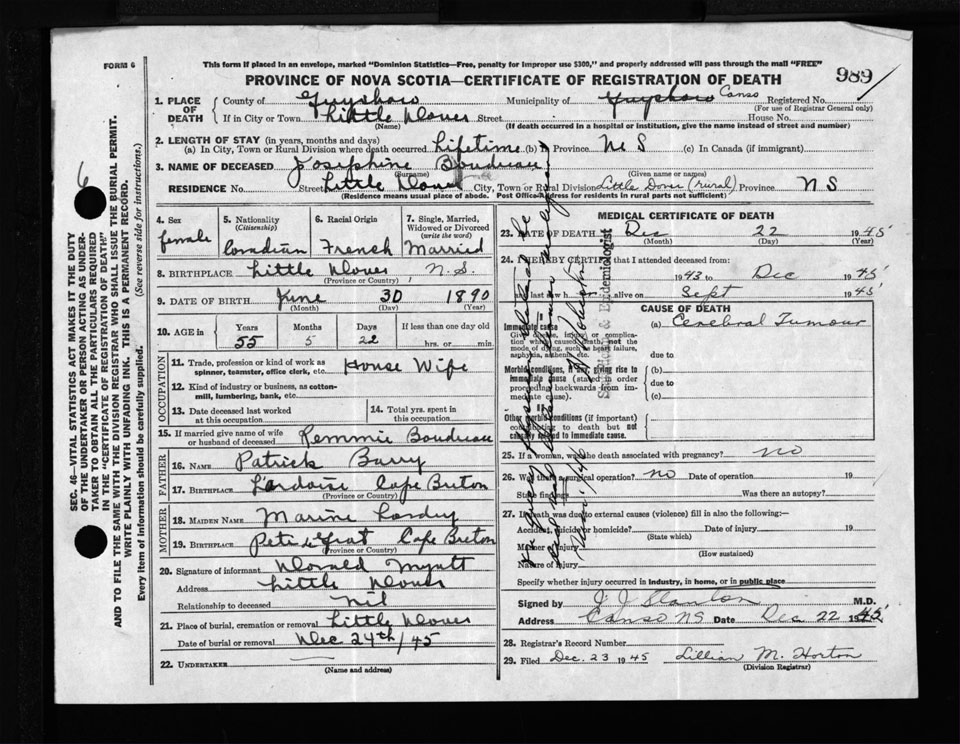 FORM 6
This form if placed in an envelope, marked "Dominion Statistics—Free, penalty for improper use $300," and properly addressed will pass through the mail "FREE"
PROVINCE OF NOVA SCOTIA—CERTIFICATE OF REGISTRATION OF DEATH
989
1. PLACE OF DEATH
County of Guysboro Municipality of Guysboro Canso Registered No.
(For use of Registrar General only)
If in City or Town Little Dover Street House No.
(Name) (If death occurred in a hospital or institution, give the name instead of street and number)
2. LENGTH OF STAY (in years, months and days)
(a) In City, Town or Rural Division where death occurred Lifetime (b) Province N S (c) In Canada (if immigrant)
3. NAME OF DECEASED Josephine Boudreau
(Surname) (Given name or names)
RESIDENCE No. Street Little Dover City, Town or Rural Division Little Dover (rural) Province N S
(Residence means usual place of abode. Post Office Address for residents in rural parts not sufficient)
4. Sex female
5. Nationality (Citizenship) Canadian
6. Racial Origin French
7. Single, Married, Widowed or Divorced (write the word) Married
8. BIRTHPLACE Little Dover N.S.
(Province or Country)
9. DATE OF BIRTH June 30 1890
(Month) (Day) (Year)
10. AGE in Years Months Days If less than one day old
55 5 22 hrs. or min.
OCCUPATION
11. Trade, profession or kind of work as spinner, teamster, office clerk, etc. House Wife
12. Kind of industry or business, as cotton-mill, lumbering, bank, etc.
13. Date deceased last worked at this occupation
14. Total yrs. spent in this occupation
15. If married give name of wife or husband of deceased Remmie Boudreau
FATHER
16. NAME Patrick Barry
17. BIRTHPLACE L'ardoise Cape Breton
(Province or Country)
MOTHER
18. MAIDEN NAME Marine Landry
19. BIRTHPLACE Petit de Grat Cape Breton
(Province or Country)
20. Signature of informant Donald Myatt
Address Little Dover
Relationship to deceased nil
21. Place of burial, cremation or removal Little Dover
Date of burial or removal Dec 24th/45
22. UNDERTAKER
(Name and address)
MEDICAL CERTIFICATE OF DEATH
23. DATE OF DEATH Dec 22 1945
(Month) (Day) (Year)
24. I HEREBY CERTIFY that I attended deceased from:
1943 to Dec 1945
last saw h alive on Sept 1945
CAUSE OF DEATH
Immediate cause
Give disease, injury, or complication which caused death, not the mode of dying, such as heart failure, asphyxia, asthenia, etc.
(a) Cerebral Tumour
due to
Morbid conditions, if any, giving rise to immediate cause (stated in order proceeding backwards from immediate cause).
(b)
due to
(c)
Other morbid conditions (if important) contributing to death but not causally related to immediate cause.
25. If a woman, was the death associated with pregnancy? no
26. Was there a surgical operation? no Date of operation 19
State findings Was there an autopsy?
27. If death was due to external causes (violence) fill in also the following:—
Accident, suicide or homicide? Date of injury 19
(State which)
Manner of injury
(How sustained)
Nature of injury
Specify whether injury occurred in industry, in home, or in public place
Signed by J J Stanton M.D.
Address Canso NS Date Dec 22 1945
28. Registrar's Record Number
29. Filed Dec. 23 1945 Lillian M. Horton
(Division Registrar)
Statistician & Epidemiologist
6
SEC. 46—VITAL STATISTICS ACT MAKES IT THE DUTY OF THE UNDERTAKER OR PERSON ACTING AS UNDERTAKER TO OBTAIN ALL THE PARTICULARS REQUIRED IN THE "CERTIFICATE OF REGISTRATION OF DEATH" AND TO FILE THE SAME WITH THE DIVISION REGISTRAR WHO SHALL ISSUE THE BURIAL PERMIT.
WRITE PLAINLY WITH UNFADING INK. THIS IS A PERMANENT RECORD.
Every item of information should be carefully supplied. (See reverse side for instructions.)